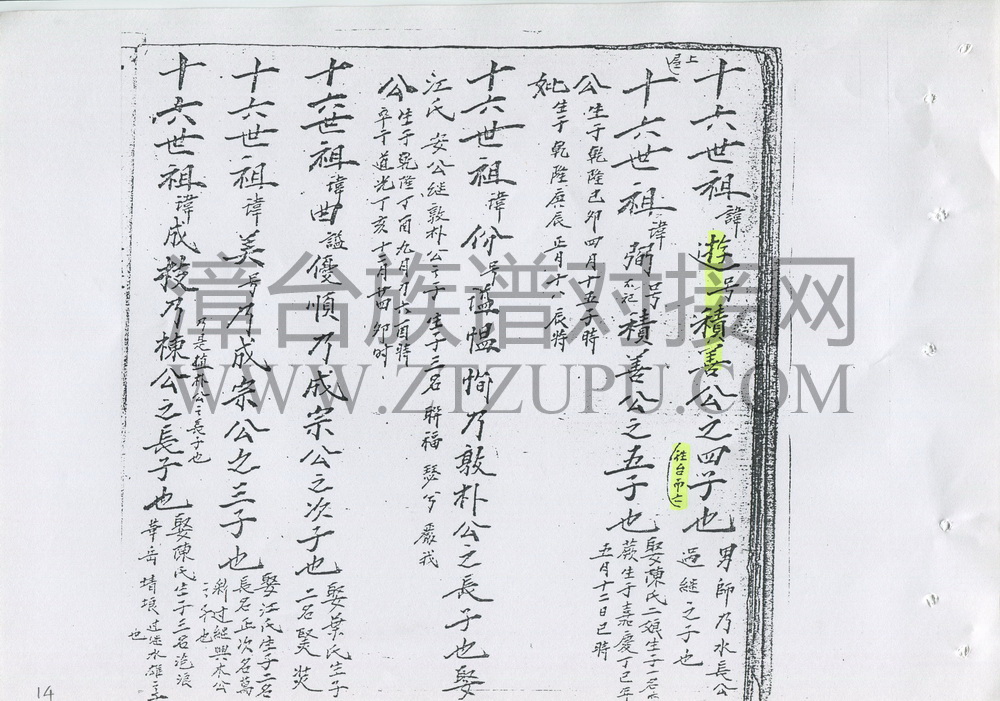 上
十六世祖諱遊号積善公之四子也男師乃水長公
過継之子也
往台而亡
十六世祖諱弼号積善公之五子也娶陳氏二娘生子一名
蕨生于嘉慶丁巳年
五月十二日巳時
公生于乾隆己卯四月十五子時
妣生于乾隆庚辰正月十八辰時
十六世祖諱份号謚愠恂乃敦朴公之長子也娶
江氏 安公継敦朴公子 生子三名 聨福 琴兮 嚴我
公生于乾隆丁酉九月 六酉時
卒于道光丁亥十 月廿四卯时
十六世祖諱曲謚優順乃成宗公之次子也娶葉氏生子
二名賢 炎
十六世祖諱美号乃成宗公之三子也娶江氏生子二名
長名正次名萬
新过継與水公
子也
乃是植朴公之長子也
十六世祖諱成 乃棟公之長子也娶陳氏生子三名
華岳 过継水雄
也
漳台族谱对接网
WWW.ZTZUPU.COM
14